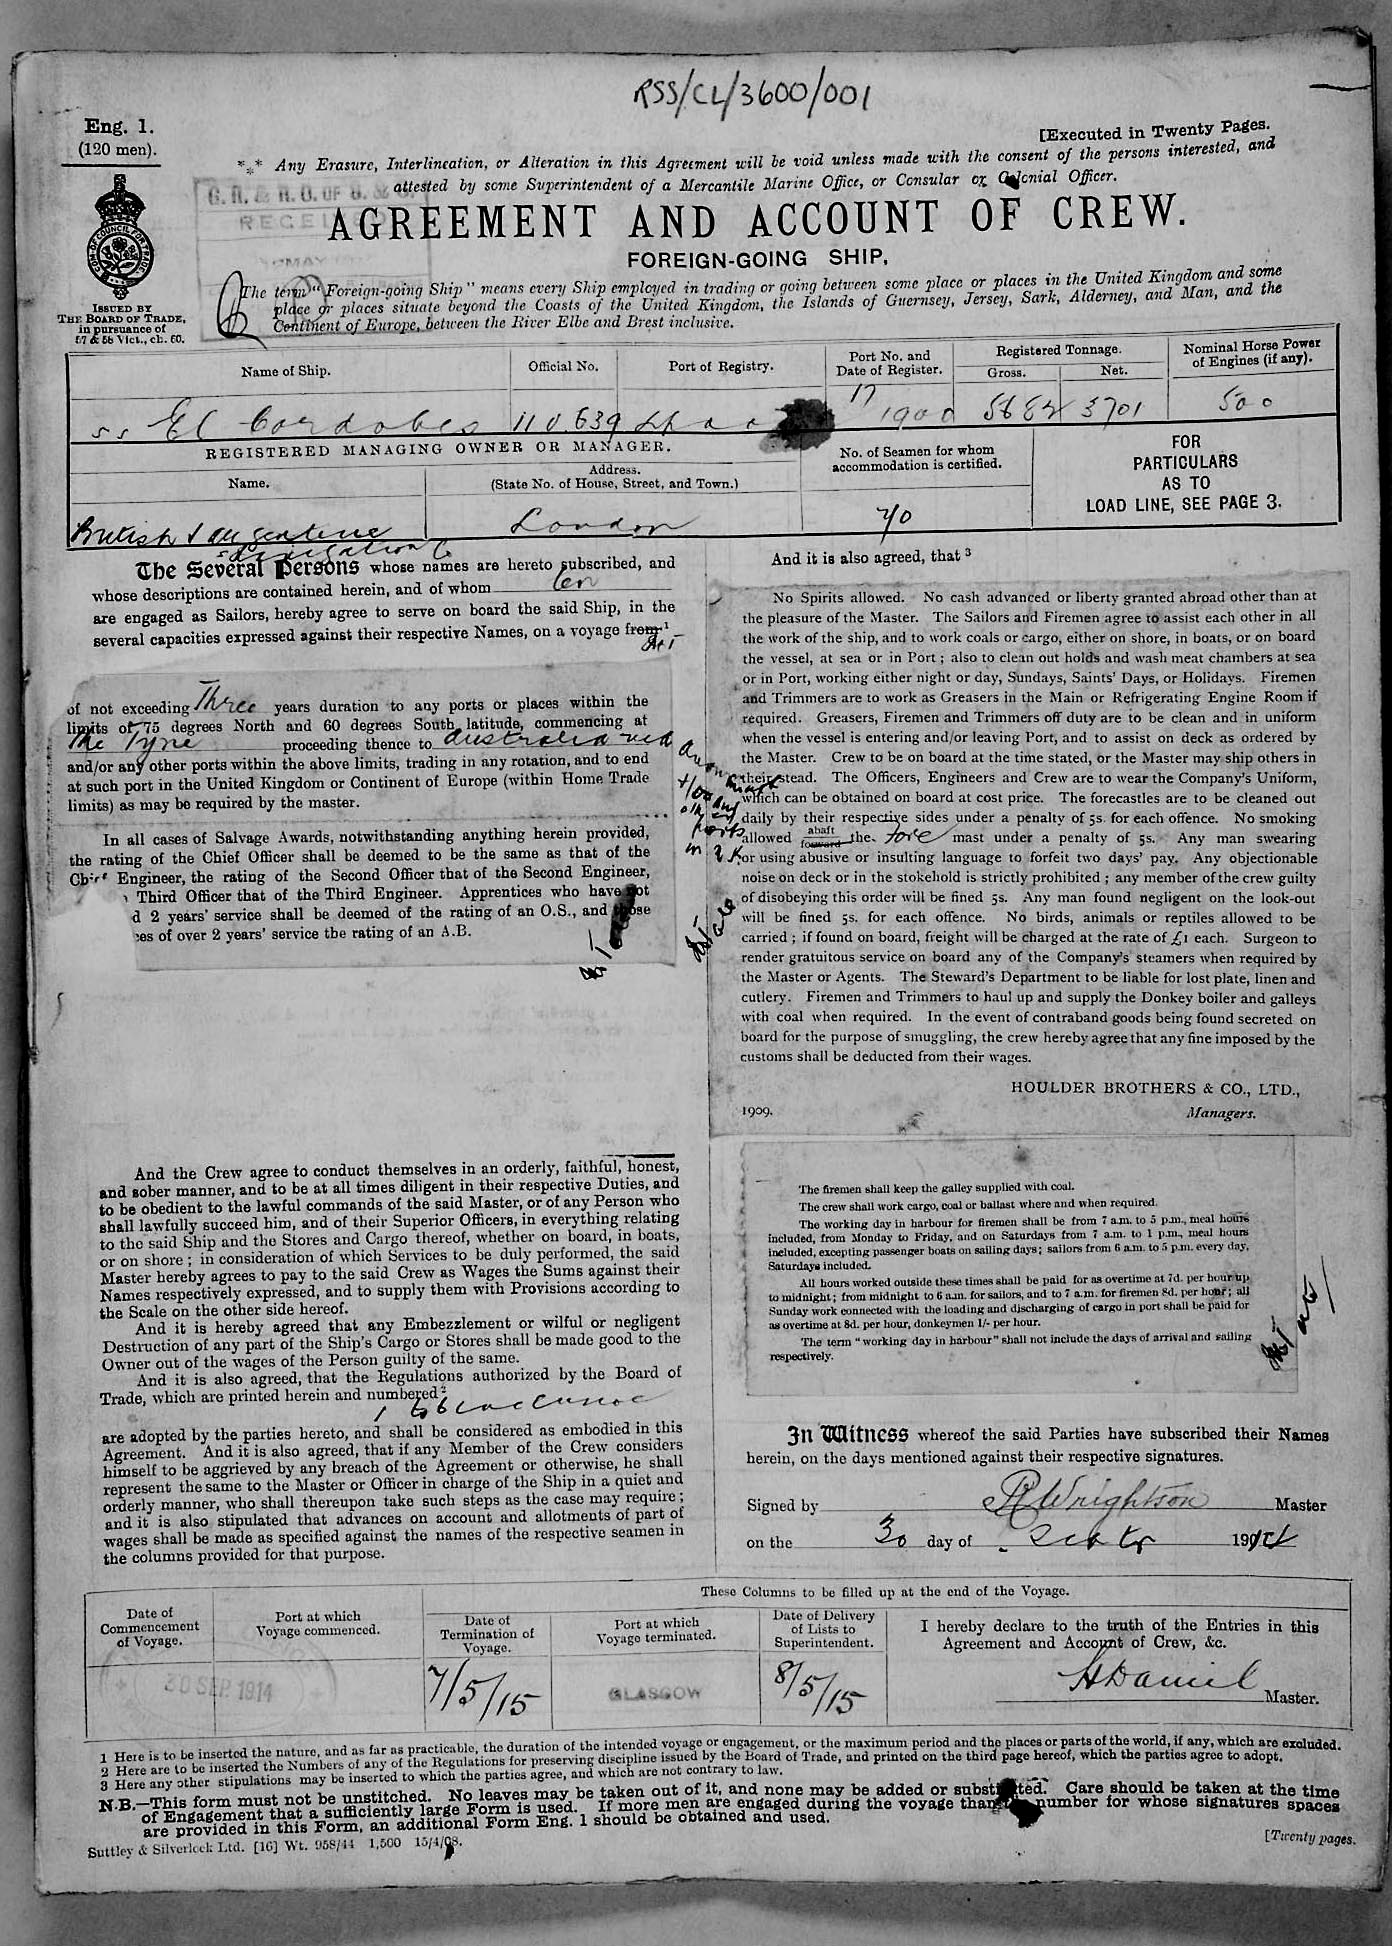 RSS/CL/3600/001
Eng. 1.
(120 men).
[Executed in Twenty Pages.
*** Any Erasure, Interlineation, or Alteration in this Agreement will be void unless made with the consent of the persons interested, and
attested by some Superintendent of a Mercantile Marine Office, or Consular or Colonial Officer.
AGREEMENT AND ACCOUNT OF CREW.
FOREIGN-GOING SHIP.
ISSUED BY
THE BOARD OF TRADE,
in pursuance of
57 & 58 Vict., ch. 60.
The term "Foreign-going Ship" means every Ship employed in trading or going between some place or places in the United Kingdom and some
place or places situate beyond the Coasts of the United Kingdom, the Islands of Guernsey, Jersey, Sark, Alderney, and Man, and the
Continent of Europe, between the River Elbe and Brest inclusive.
Name of Ship.
Official No.
Port of Registry.
Port No. and
Date of Register.
Registered Tonnage.
Gross.
Net.
Nominal Horse Power
of Engines (if any).
ss El Cordobes
110.639
17
1900
5682
3701
500
REGISTERED MANAGING OWNER OR MANAGER.
Name.
Address.
(State No. of House, Street, and Town.)
No. of Seamen for whom
accommodation is certified.
FOR
PARTICULARS
AS TO
LOAD LINE, SEE PAGE 3.
British & Argentine
Navigation Co
London
70
The Several Persons whose names are hereto subscribed, and
whose descriptions are contained herein, and of whom ten
are engaged as Sailors, hereby agree to serve on board the said Ship, in the
several capacities expressed against their respective Names, on a voyage from 1
of not exceeding Three years duration to any ports or places within the
limits of 75 degrees North and 60 degrees South latitude, commencing at
The Tyne proceeding thence to Australia
and/or any other ports within the above limits, trading in any rotation, and to end
at such port in the United Kingdom or Continent of Europe (within Home Trade
limits) as may be required by the master.
In all cases of Salvage Awards, notwithstanding anything herein provided,
the rating of the Chief Officer shall be deemed to be the same as that of the
Chief Engineer, the rating of the Second Officer that of the Second Engineer,
Third Officer that of the Third Engineer. Apprentices who have not
d 2 years' service shall be deemed of the rating of an O.S., and those
ces of over 2 years' service the rating of an A.B.
And the Crew agree to conduct themselves in an orderly, faithful, honest,
and sober manner, and to be at all times diligent in their respective Duties, and
to be obedient to the lawful commands of the said Master, or of any Person who
shall lawfully succeed him, and of their Superior Officers, in everything relating
to the said Ship and the Stores and Cargo thereof, whether on board, in boats,
or on shore; in consideration of which Services to be duly performed, the said
Master hereby agrees to pay to the said Crew as Wages the Sums against their
Names respectively expressed, and to supply them with Provisions according to
the Scale on the other side hereof.
And it is hereby agreed that any Embezzlement or wilful or negligent
Destruction of any part of the Ship's Cargo or Stores shall be made good to the
Owner out of the wages of the Person guilty of the same.
And it is also agreed, that the Regulations authorized by the Board of
Trade, which are printed herein and numbered 2
1 to 6 inclusive
are adopted by the parties hereto, and shall be considered as embodied in this
Agreement. And it is also agreed, that if any Member of the Crew considers
himself to be aggrieved by any breach of the Agreement or otherwise, he shall
represent the same to the Master or Officer in charge of the Ship in a quiet and
orderly manner, who shall thereupon take such steps as the case may require;
and it is also stipulated that advances on account and allotments of part of
wages shall be made as specified against the names of the respective seamen in
the columns provided for that purpose.
And it is also agreed, that 3
No Spirits allowed. No cash advanced or liberty granted abroad other than at
the pleasure of the Master. The Sailors and Firemen agree to assist each other in all
the work of the ship, and to work coals or cargo, either on shore, in boats, or on board
the vessel, at sea or in Port; also to clean out holds and wash meat chambers at sea
or in Port, working either night or day, Sundays, Saints' Days, or Holidays. Firemen
and Trimmers are to work as Greasers in the Main or Refrigerating Engine Room if
required. Greasers, Firemen and Trimmers off duty are to be clean and in uniform
when the vessel is entering and/or leaving Port, and to assist on deck as ordered by
the Master. Crew to be on board at the time stated, or the Master may ship others in
their stead. The Officers, Engineers and Crew are to wear the Company's Uniform,
which can be obtained on board at cost price. The forecastles are to be cleaned out
daily by their respective sides under a penalty of 5s. for each offence. No smoking
allowed abaft forward the fore mast under a penalty of 5s. Any man swearing
or using abusive or insulting language to forfeit two days' pay. Any objectionable
noise on deck or in the stokehold is strictly prohibited; any member of the crew guilty
of disobeying this order will be fined 5s. Any man found negligent on the look-out
will be fined 5s. for each offence. No birds, animals or reptiles allowed to be
carried; if found on board, freight will be charged at the rate of £1 each. Surgeon to
render gratuitous service on board any of the Company's steamers when required by
the Master or Agents. The Steward's Department to be liable for lost plate, linen and
cutlery. Firemen and Trimmers to haul up and supply the Donkey boiler and galleys
with coal when required. In the event of contraband goods being found secreted on
board for the purpose of smuggling, the crew hereby agree that any fine imposed by the
customs shall be deducted from their wages.
HOULDER BROTHERS & CO., LTD.,
1909.
Managers.
The firemen shall keep the galley supplied with coal.
The crew shall work cargo, coal or ballast where and when required.
The working day in harbour for firemen shall be from 7 a.m. to 5 p.m., meal hours
included, from Monday to Friday, and on Saturdays from 7 a.m. to 1 p.m., meal hours
included, excepting passenger boats on sailing days; sailors from 6 a.m. to 5 p.m. every day,
Saturdays included.
All hours worked outside these times shall be paid for as overtime at 7d. per hour up
to midnight; from midnight to 6 a.m. for sailors, and to 7 a.m. for firemen 8d. per hour; all
Sunday work connected with the loading and discharging of cargo in port shall be paid for
as overtime at 8d. per hour, donkeymen 1/- per hour.
The term "working day in harbour" shall not include the days of arrival and sailing
respectively.
In Witness whereof the said Parties have subscribed their Names
herein, on the days mentioned against their respective signatures.
Signed by R Wrightson Master
on the 30 day of Septr 1914
These Columns to be filled up at the end of the Voyage.
Date of
Commencement
of Voyage.
Port at which
Voyage commenced.
Date of
Termination of
Voyage.
Port at which
Voyage terminated.
Date of Delivery
of Lists to
Superintendent.
I hereby declare to the truth of the Entries in this
Agreement and Account of Crew, &c.
30 SEP. 1914
7/5/15
GLASGOW
8/5/15
H Daniel
Master.
1 Here is to be inserted the nature, and as far as practicable, the duration of the intended voyage or engagement, or the maximum period and the places or parts of the world, if any, which are excluded.
2 Here are to be inserted the Numbers of any of the Regulations for preserving discipline issued by the Board of Trade, and printed on the third page hereof, which the parties agree to adopt.
3 Here any other stipulations may be inserted to which the parties agree, and which are not contrary to law.
N.B.—This form must not be unstitched. No leaves may be taken out of it, and none may be added or substituted. Care should be taken at the time
of Engagement that a sufficiently large Form is used. If more men are engaged during the voyage than number for whose signatures spaces
are provided in this Form, an additional Form Eng. 1 should be obtained and used.
Suttley & Silverlock Ltd. [16] Wt. 958/44 1,500 15/4/08.
[Twenty pages.